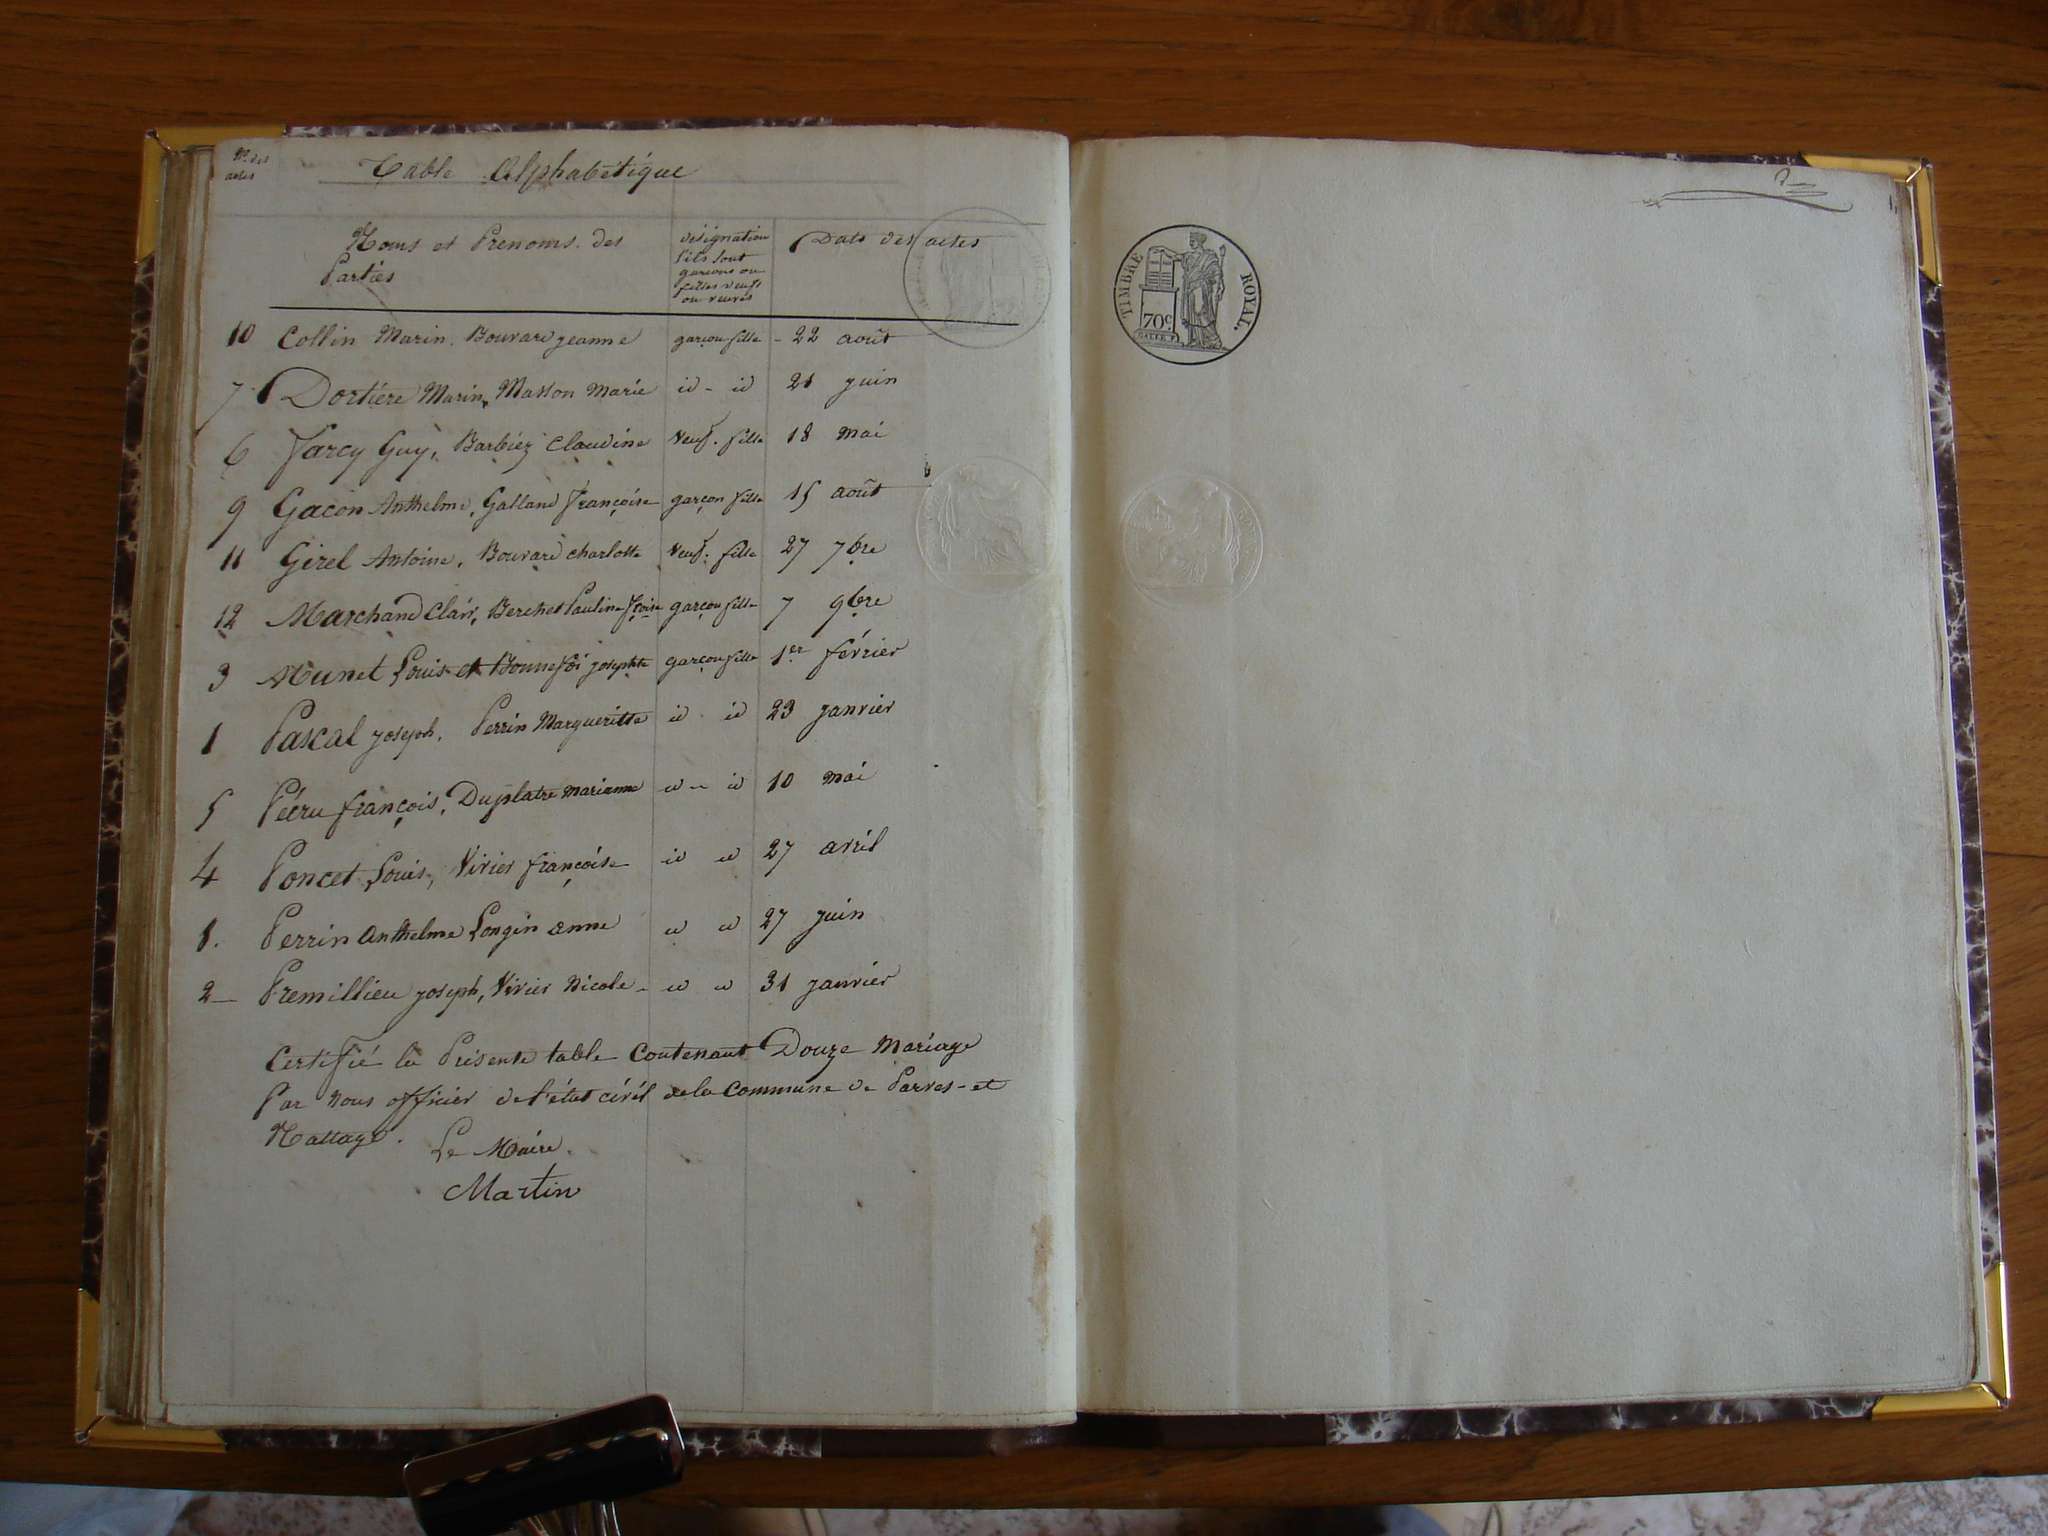 Nos des
actes
Table Alphabétique
Noms et Prenoms des
Parties
désignation
s'ils sont
garçons ou
filles veufs
ou veuves
Date des actes
10 Collin Marin. Bouvard jeanne garçon fille - 22 août
7 Dortière Marin, Masson Marie id - id 21 juin
6 Farcy Guy, Barbiez Claudine Veuf. fille 18 Mai
9 Gacon Anthelme, Galland Françoise garçon fille 15 août
11 Girel Antoine, Bouvard charlotte Veuf. fille 27 7bre
12 Marchand Clair, Berchet Pauline fçoise garçon fille 7 9bre
3 Munet Louis et Bonnefoi josephte garçon fille 1er février
1 Pascal joseph, Perrin Margueritte id id 23 janvier
5 Pécru françois, Duplatre marianne id - id 10 Mai
4 Poncet Louis, Vivier françoise id id 27 avril
8. Perrin anthelme Longin anne id id 27 juin
2 - Premillieu joseph, Vivier Nicole - id id 31 janvier
Certifié la Présente table Contenant Douze Mariage
Par Nous officier de l'état civil de la Commune de Parves-et
Nattage.
Le Maire.
Martin
TIMBRE ROYAL.
70c